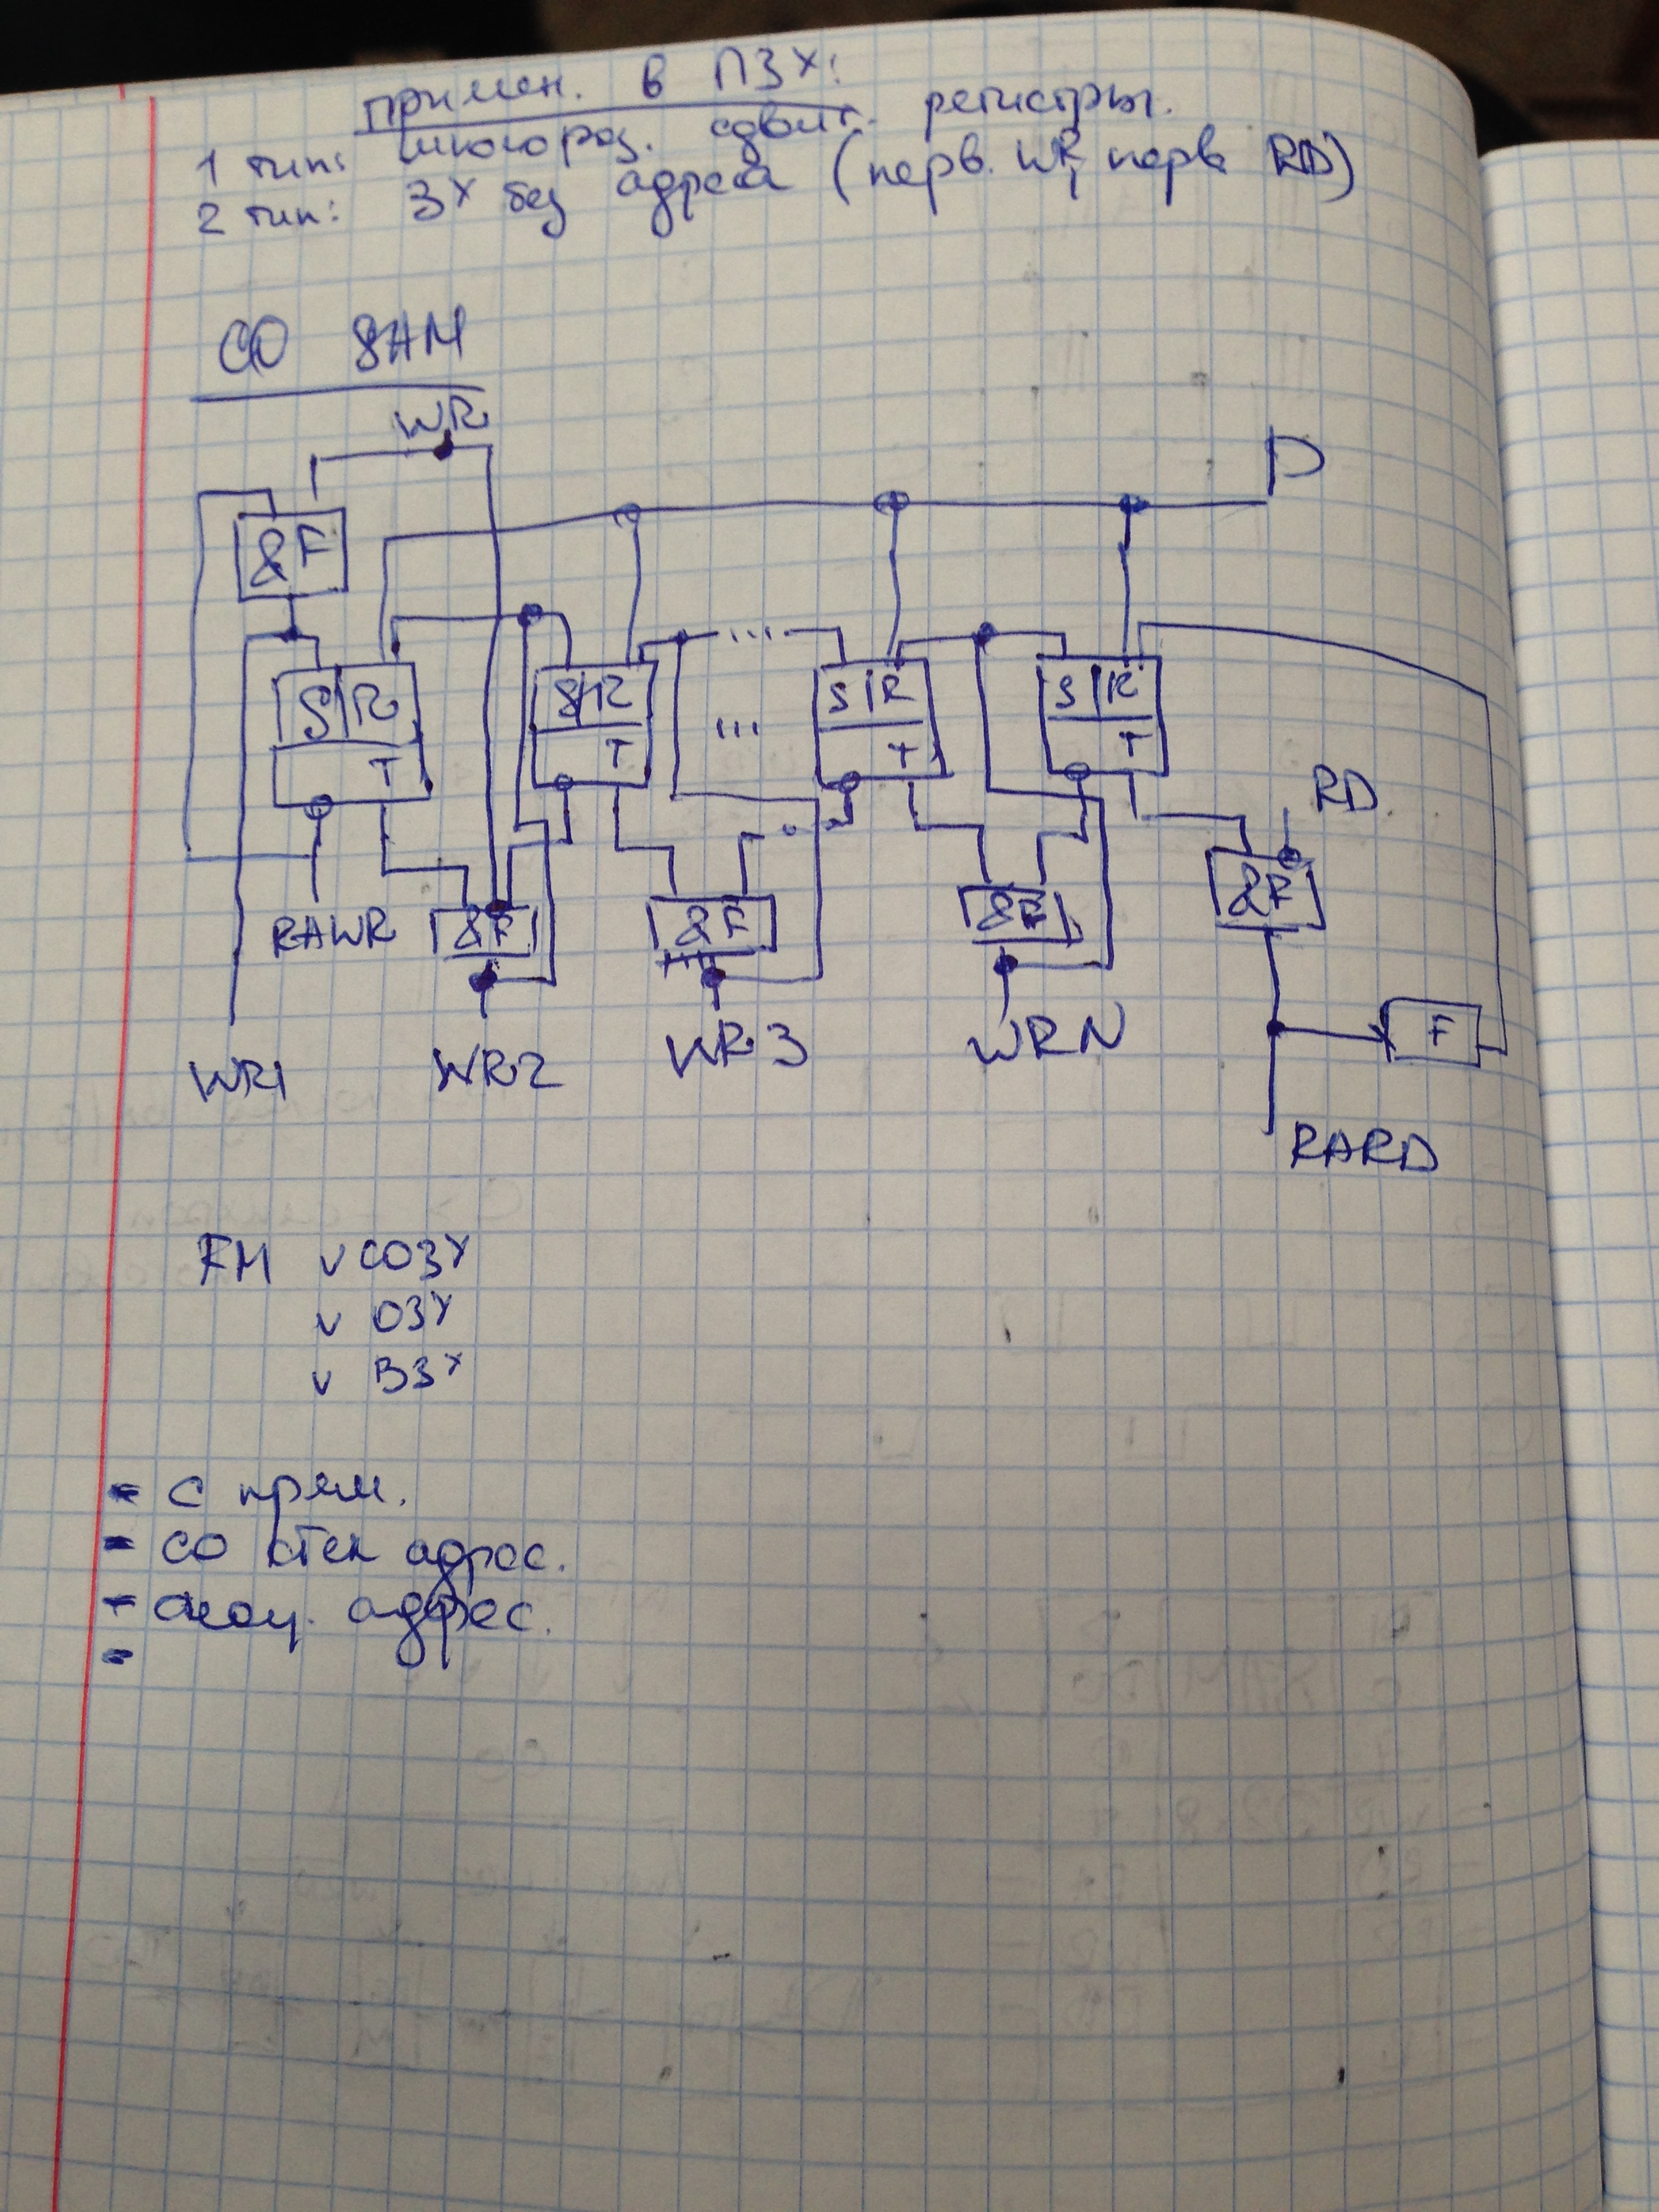 примен. в ПЗУ:
1 тип: многораз. сдвиг. регистры.
2 тип: ЗУ без адреса (перв. WR, перв. RD)
CO SAM
WR
D
& F
S R
T
S R
T
...
...
S R
T
S R
T
RD
RAWR
& F
& F
& F
& F
F
WR1
WR2
WR3
WRN
RARD
FM v СОЗУ
v ОЗУ
v ВЗУ
- с прям.
- со стек адрес.
- ассоц. адрес.
-